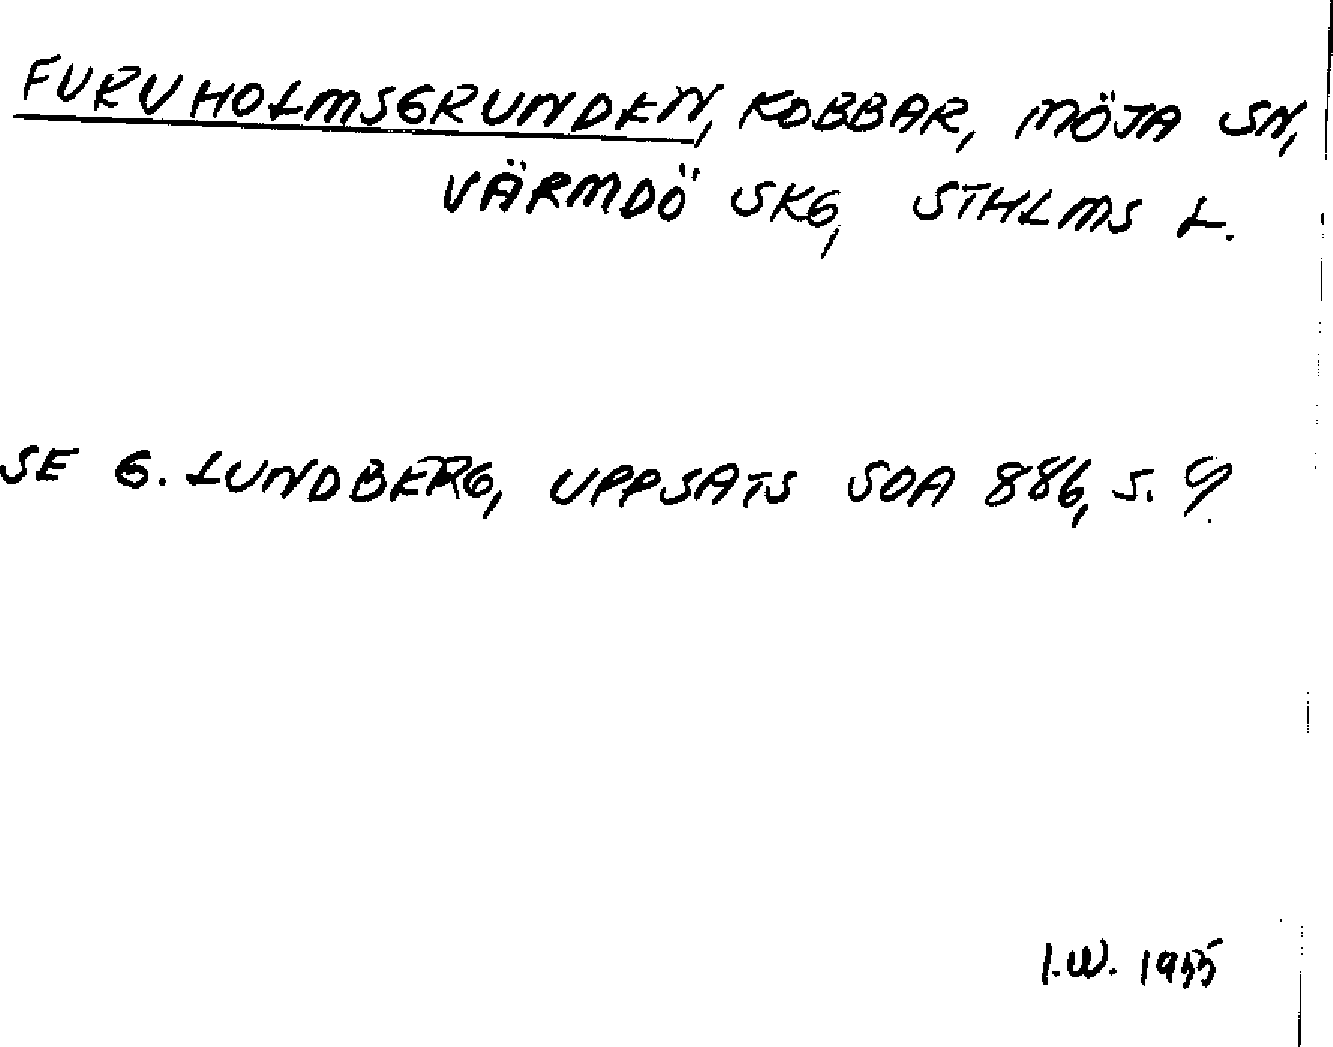 FURUHOLMSGRUNDEN, KOBBAR, MÖJA SN,
VÄRMDÖ SKG, STHLMS L.
SE G. LUNDBERG, UPPSATS SOA 886, S. 9.
I.W. 1955